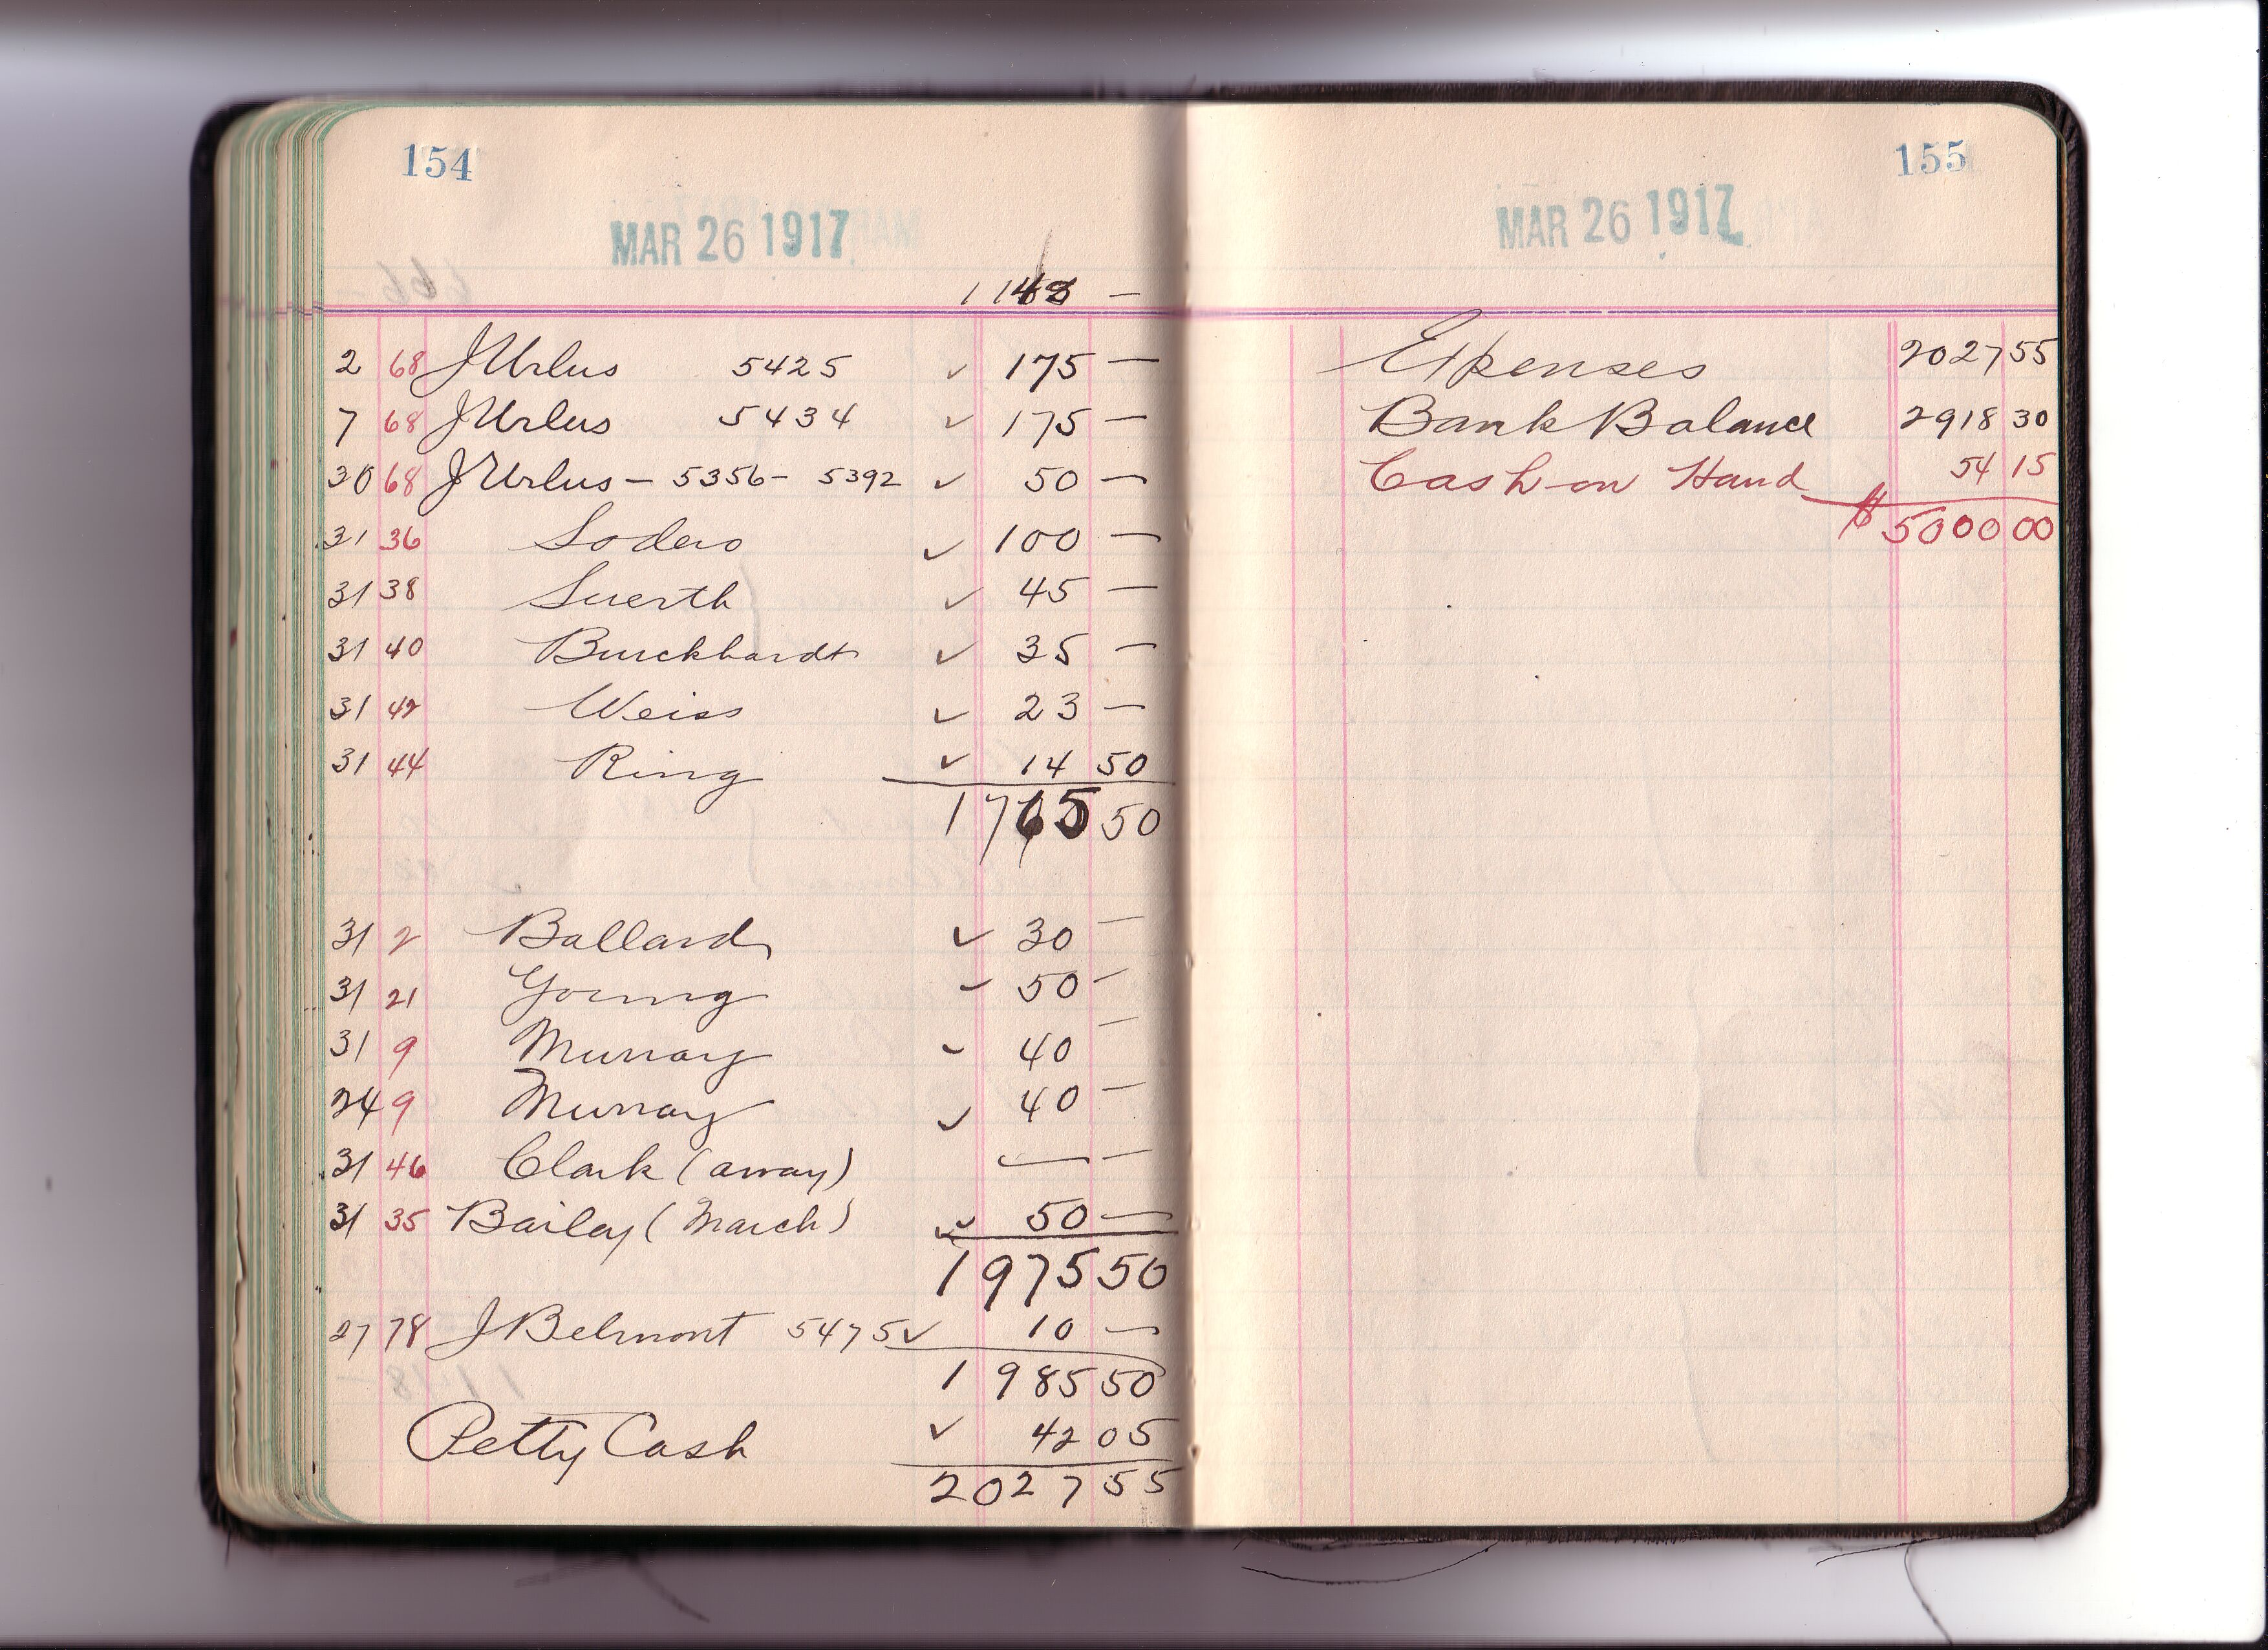 154
MAR 26 1917
1148 —
2 68 J Urlus 5425 ✓ 175 —
7 68 J Urlus 5434 ✓ 175 —
30 68 J Urlus – 5356 – 5392 ✓ 50 —
31 36 Sodero ✓ 100 —
31 38 Suerth ✓ 45 —
31 40 Burckhardt ✓ 35 —
31 42 Weiss ✓ 23 —
31 44 Ring ✓ 14 50
1765 50
31 2 Ballard ✓ 30 —
31 21 Young ✓ 50 —
31 9 Murray ✓ 40 —
24 9 Murray ✓ 40 —
31 46 Clark (away) — —
31 35 Bailey (March) ✓ 50 —
1975 50
27 78 J Belmont 5475 ✓ 10 —
1985 50
Petty Cash ✓ 42 05
2027 55
155
MAR 26 1917
Expenses 2027 55
Bank Balance 2918 30
Cash on Hand 54 15
$ 5000 00